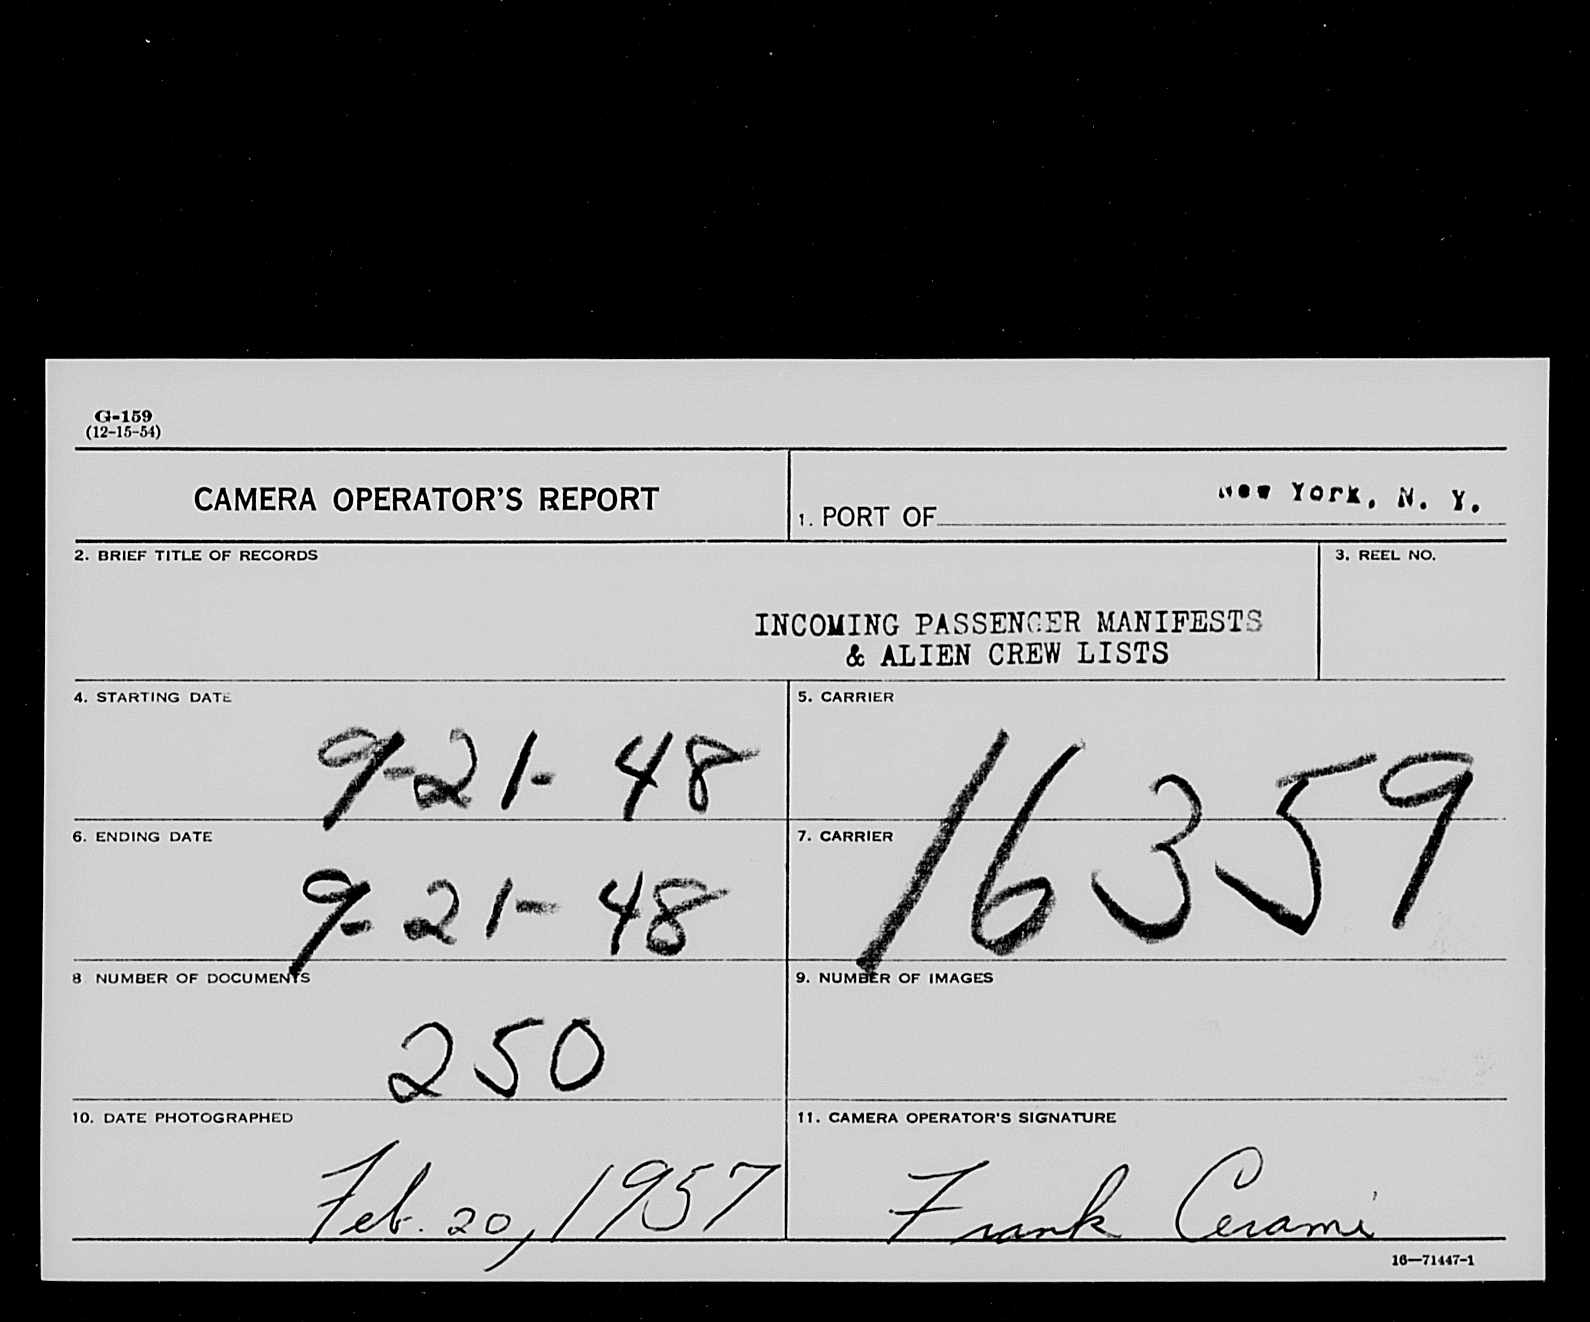 G-159
(12-15-54)
CAMERA OPERATOR'S REPORT
1. PORT OF New York, N. Y.
2. BRIEF TITLE OF RECORDS
3. REEL NO.
INCOMING PASSENGER MANIFESTS
& ALIEN CREW LISTS
4. STARTING DATE
9-21-48
5. CARRIER
16359
6. ENDING DATE
9-21-48
7. CARRIER
8 NUMBER OF DOCUMENTS
250
9. NUMBER OF IMAGES
10. DATE PHOTOGRAPHED
Feb. 20, 1957
11. CAMERA OPERATOR'S SIGNATURE
Frank Cerami
16—71447-1